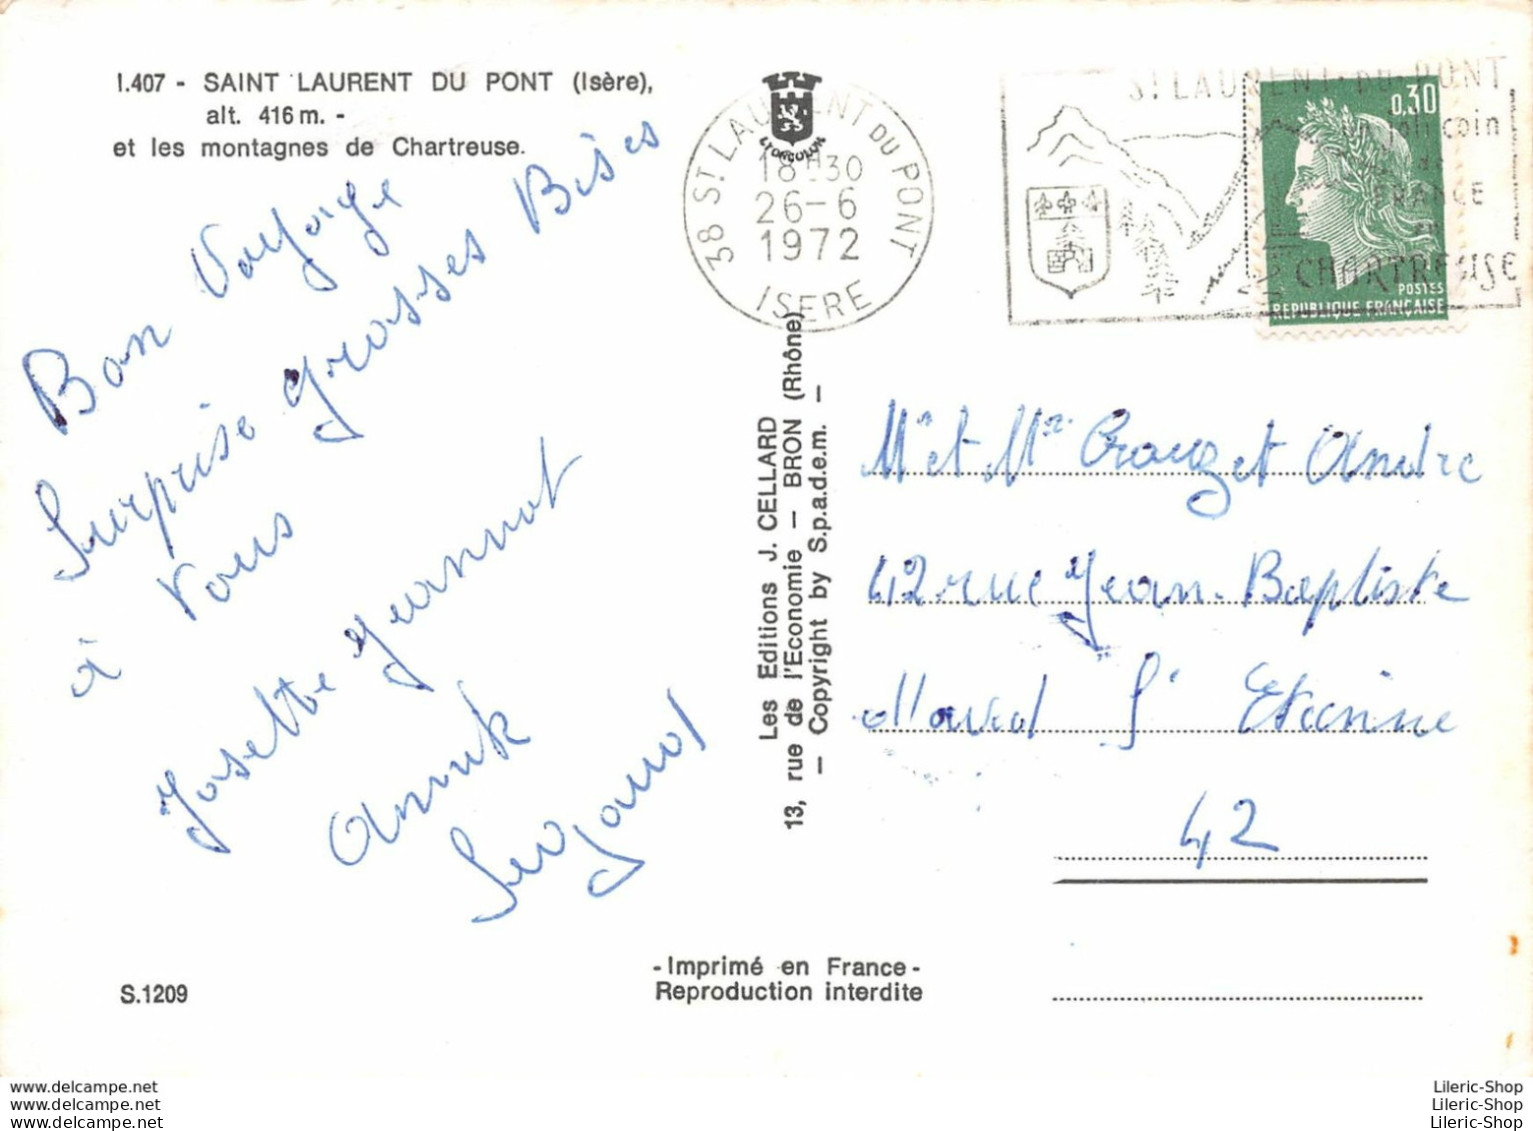 I.407 - SAINT LAURENT DU PONT (Isère),
alt. 416 m. -
et les montagnes de Chartreuse.
Bon Voyage
Surprise grosses Bises
à Vous
Josette Jeannot
Annick
LYONCOLOR
38 ST LAURENT DU PONT
18H30
26-6
1972
ISERE
ST LAURENT-DU-PONT
un joli coin
de
FRANCE
en
CHARTREUSE
0,30
POSTES
REPUBLIQUE FRANÇAISE
Les Editions J. CELLARD
13, rue de l'Economie - BRON (Rhône)
- Copyright by S.p.a.d.e.m. -
Mr et Me Crouzet Andre
42 rue Jean-Baptiste
St Etienne
42
S.1209
-Imprimé en France-
Reproduction interdite
www.delcampe.net
www.delcampe.net
www.delcampe.net
Lileric-Shop
Lileric-Shop
Lileric-Shop